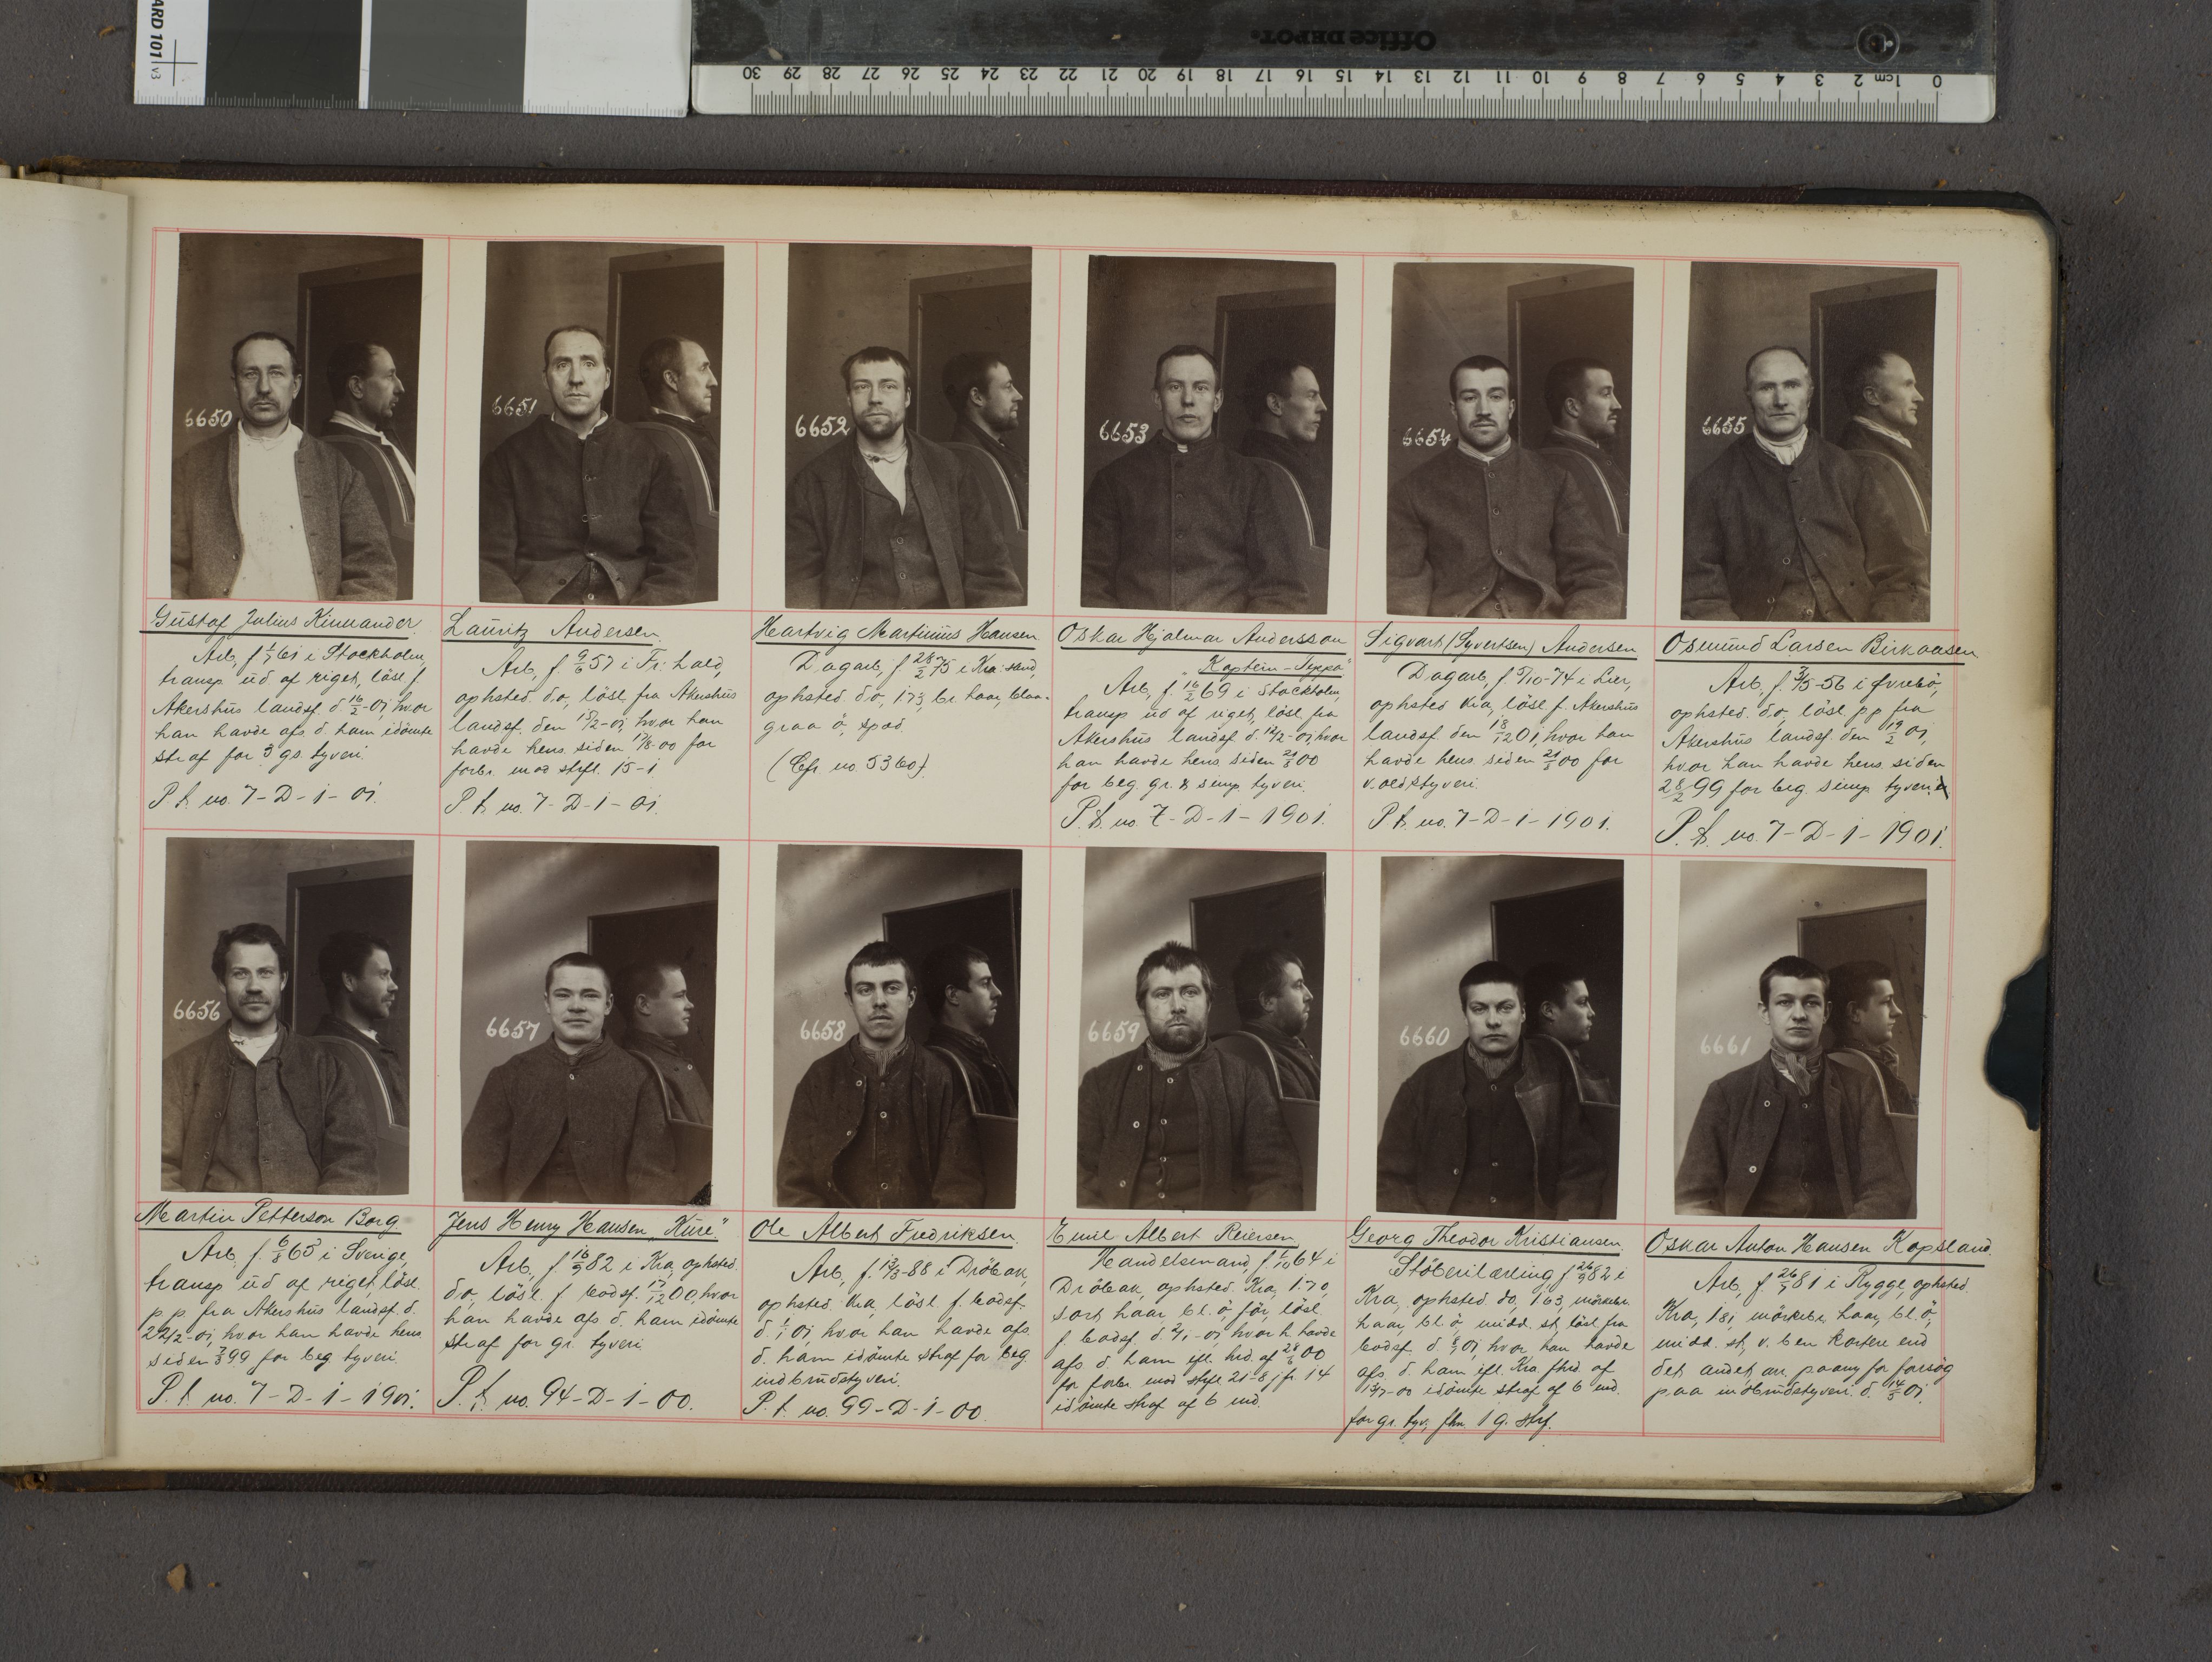 ARD 101 v3
Office DEPOT.
0 1cm 2 3 4 5 6 7 8 9 10 11 12 13 14 15 16 17 18 19 20 21 22 23 24 25 26 27 28 29 30
6650
Gustaf Julius Kinnander.
Arb, f 1/7 61 i Stockholm,
transp ud af riget, løsl f.
Akershus landsf. d 16/2-01, hvor
han havde afs. d. ham idømte
straf for 3 gs. tyveri.
P. f. no. 7-D-1-01.
6651
Lauritz Andersen.
Arb, f. 9/6 57 i Fr: hald,
ophsted. do, løsl fra Akershus
landsf. den 15/2-01, hvor han
havde hens. siden 17/8-00 for
forbr. mod strfl. 15-1.
P. f. no. 7-D-1-01.
6652
Hartvig Martinius Hansen
Dagarb, f 28/2 75 i Kra: sand,
ophsted. do, 173, br. haar, blaa-
graa ö, spæd.
(Cfr. no. 5360).
6653
Oskar Hjalmar Andersson
"Kaptein-Seppa"
Arb, f. 16/2 69 i Stockholm,
transp ud af riget, løsl. fra
Akershus landsf d. 12/2-01, hvor
han havde hens. siden 00
for beg. gr. & simp. tyveri.
P. f. no. 7-D-1-1901.
6654
Sigvart (Syvertsen) Andersen
Dagarb, f. 5/10-74 i Lier,
ophsted Kra, løsl f. Akershus
landsf. den 01, hvor han
havde hens. siden 00 for
voldstyveri.
P. f. no. 7-D-1-1901.
6655
Osmund Larsen Birkaasen
Arb, f. 3/5-56 i Øvrebö,
ophsted. do, løsl. p.p. fra
Akershus landsf. den 19/2 01,
hvor han havde hens. siden
28/2 99 for beg. simp. tyveri.
P. f. no. 7-D-1-1901.
6656
Martin Petterson Borg.
Arb, f. 6/8 65 i Sverige,
transp ud af riget, løsl.
p.p. fra Akershus landsf. d.
22/2-01, hvor han havde hens
siden 99 for beg. tyveri.
P. f. no. 7-D-1-1901.
6657
Jens Henry Hansen "Kure".
Arb, f. 16/9 82 i Kra, ophsted.
do, løsl. f. bodsf. 17/12 00, hvor
han havde afs d. ham idømte
straf for gr. tyveri.
P. f. no. 94-D-1-00.
6658
Ole Albert Fredriksen.
Arb, f. 13/3-88 i Dröbak,
ophsted. Kra, løsl. f. bodsf.
d. 1/1 01, hvor han havde afs.
d. ham idømte straf for beg.
indbrudstyveri.
P. f. no. 99-D-1-00.
6659
Emil Albert Reiersen
Handelsmand, f. 1/10 64 i
Dröbak, ophsted. Kra, 170,
sort haar, bl. ö, før, løsl.
f. bodsf. d. 2/1-01, hvor h. havde
afs. d. ham ifl. hrd. af 28/6 00
for forbr. mod strfl. 21-8 jfr 14
idømte straf af 6 md.
6660
Georg Theodor Kristiansen.
Støberilærling, f 26/9 82 i
Kra, ophsted. do, 163, mørkebr.
haar, bl. ö, midd. st, løsl. fra
bodsf. d. 01, hvor han havde
afs. d. ham ifl. Kra fhrd. af
13/7-00 idømte straf af 6 md.
for gr. tyv, fhn. 1 g. strf.
6661
Oskar Anton Hansen Kopsland.
Arb, f. 81 i Rygge, ophsted.
Kra, 181, mørkebr. haar, bl. ö,
midd. st, v. ben kortere end
det andet, arr. paany for forsøg
paa indbrudstyveri d. 01.